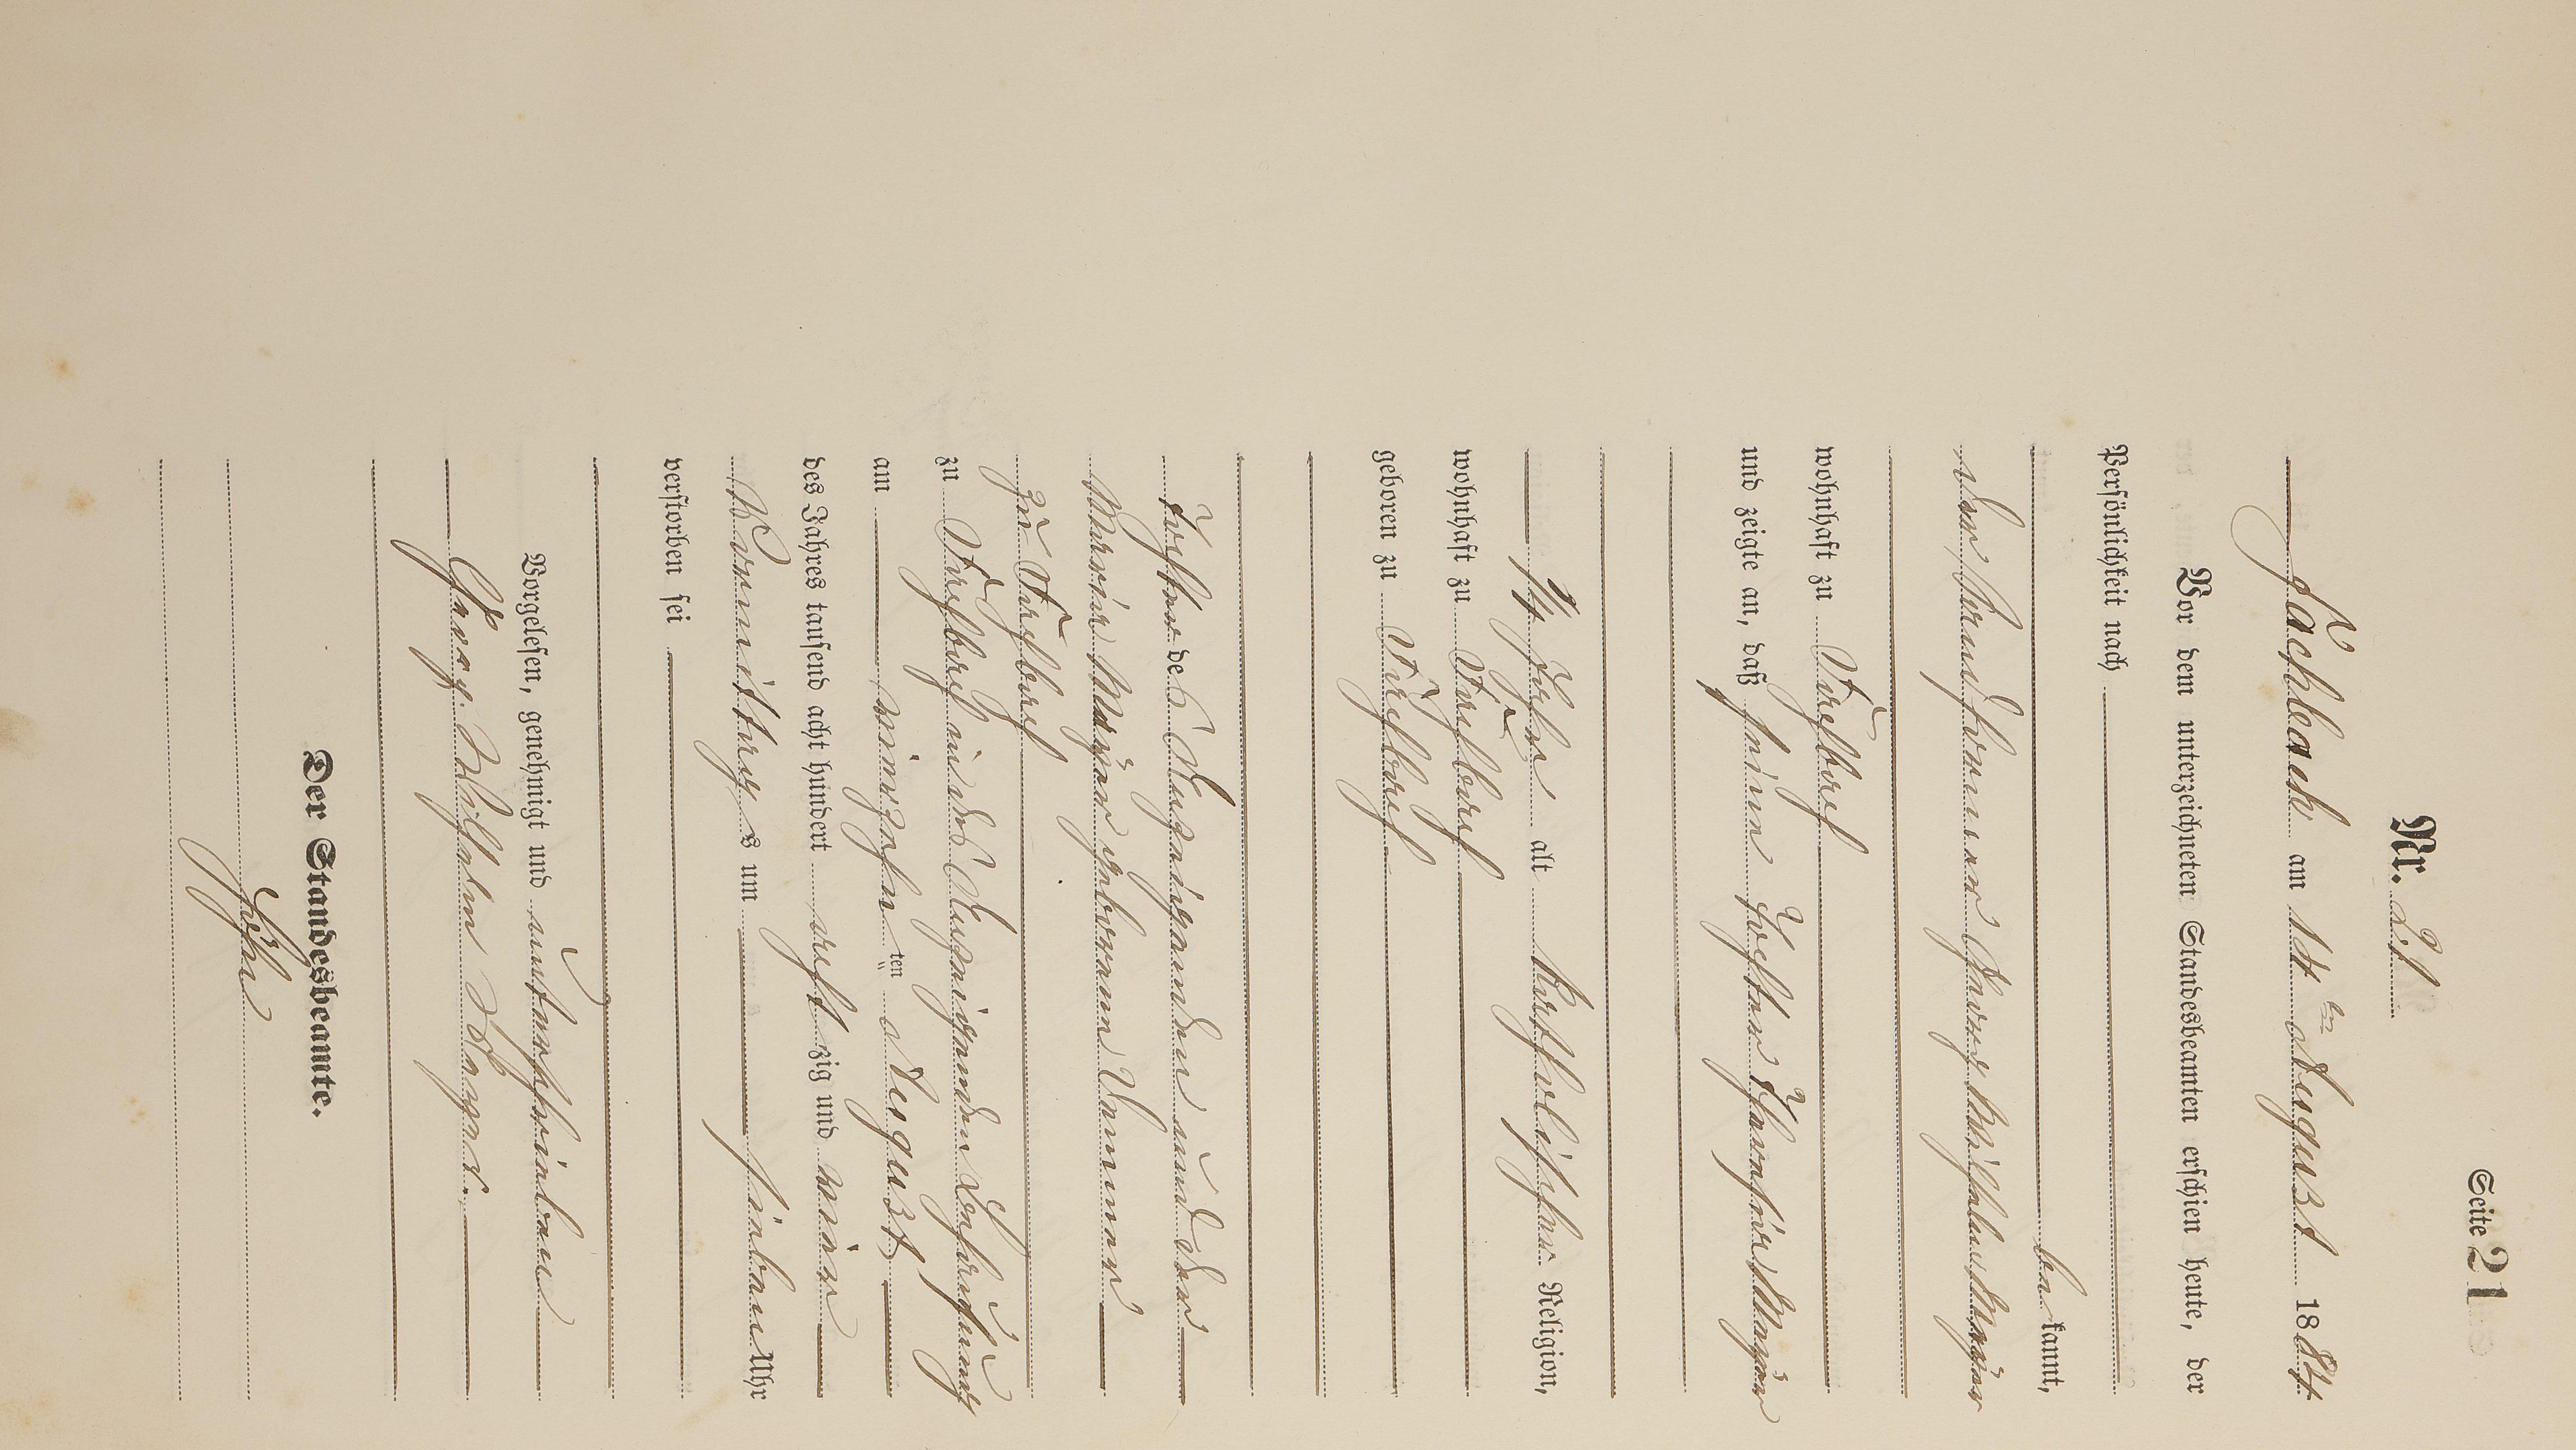 Seite 21
Nr. 21
Fachbach am 14ten August 1884
Vor dem unterzeichneten Standesbeamten erschien heute, der
Persönlichkeit nach
bekannt,
der Sandformer Georg Wilhelm Mayer
wohnhaft zu Fachbach
und zeigte an, daß seine Tochter Theresia Mayer
14 Jahre alt katholischer Religion,
wohnhaft zu Fachbach
geboren zu Fachbach
Tochter des Anzeigenden und der
Maria Mayer geborene
zu Fachbach
zu Fachbach in des Anzeigenden Behausung
am vierzehnten August
des Jahres tausend acht hundert achtzig und vier
Vormittags um sieben Uhr
verstorben sei
Vorgelesen, genehmigt und unterschrieben
Georg Wilhelm Mayer.
Der Standesbeamte.